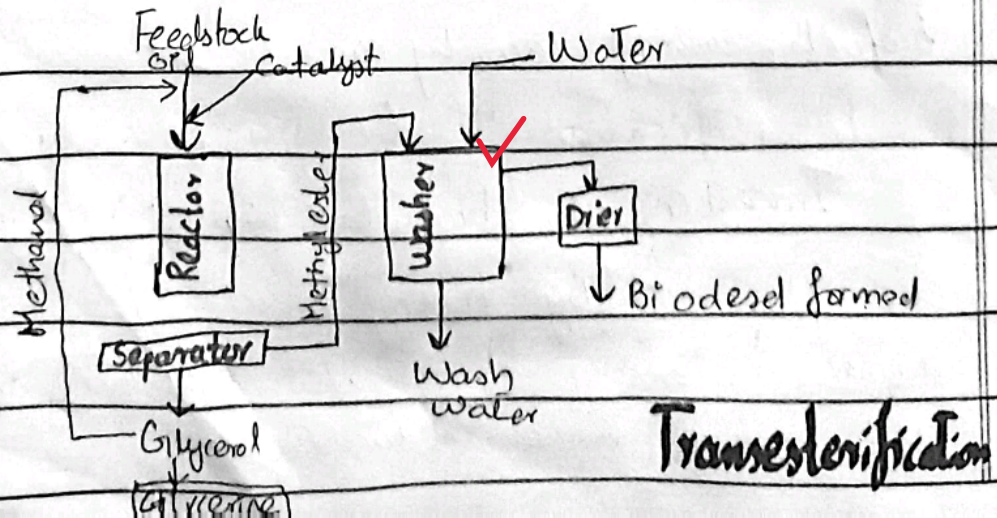 Feedstock
Oil
Catalyst
Water
Methanol
Reactor
Methylester
Washer
Drier
Biodesel formed
Separator
Wash
Water
Glycerol
Transesterification